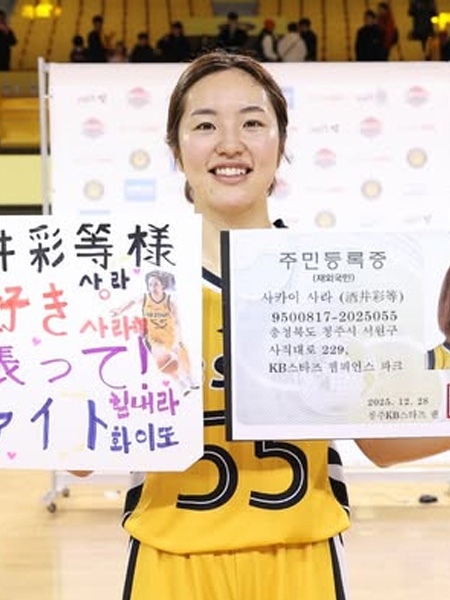 井彩等様
사라
好き
사라해
張って!
힘내라
ァイト
화이또
주민등록증
(재외국민)
사카이 사라 (酒井彩等)
9500817-2025055
충청북도 청주시 서원구
사직대로 229,
KB스타즈 챔피언스 파크
2025. 12. 28
청주KB스타즈 팬
55